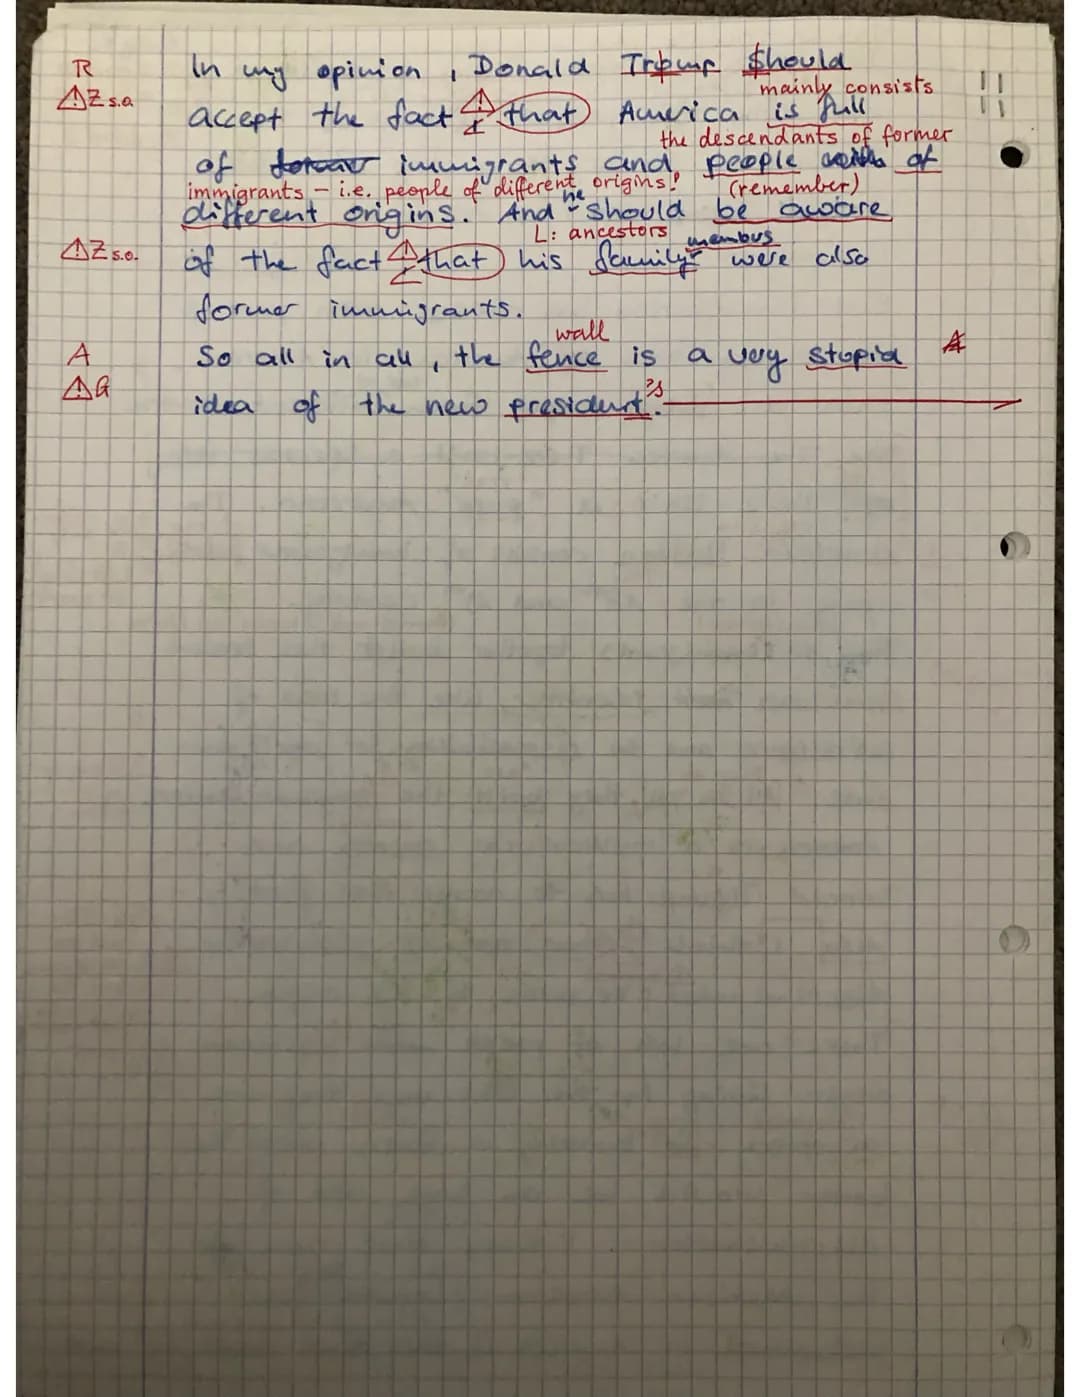 R In my opinion, Donald Trpump Should
mainly consists
⚠Z s.o. accept the fact ⚠ that America is full
the descendants of former
of immigrants and people with of
immigrants – i.e. people of different origins! (remember)
he
different origins. And should be aware
L: ancestors members
⚠Z s.o. of the fact ⚠ that his family were also
former immigrants.
wall
A So all in all, the fence is a very stupid A
⚠G idea of the new president's.